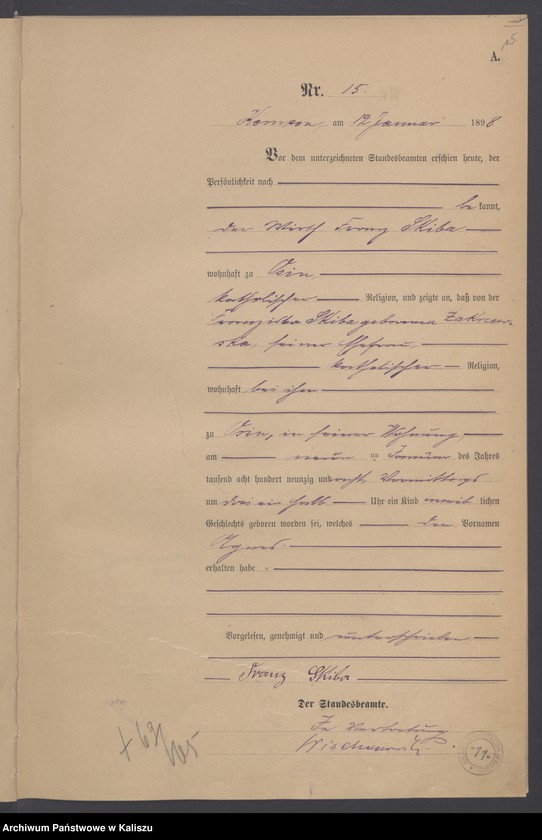 15
A.
Nr. 15.
Kempen, am 12 Januar 1898
Vor dem unterzeichneten Standesbeamten erschien heute, der
Persönlichkeit nach
bekannt,
der Wirth Franz Skiba
wohnhaft zu Osin,
katholischer Religion, und zeigte an, daß von der
Franziska Skiba geborenen Zakrzew-
ska, seiner Ehefrau,
katholischer Religion,
wohnhaft bei ihm
zu Osin, in seiner Wohnung
am neun ten Januar des Jahres
tausend acht hundert neunzig und acht Vormittags
um drei ein halb Uhr ein Kind weib lichen
Geschlechts geboren worden sei, welches den Vornamen
Agnes.
erhalten habe.
Vorgelesen, genehmigt und unterschrieben
Franz Skiba
Der Standesbeamte.
In Vertretung
+ 63/
Archiwum Państwowe w Kaliszu